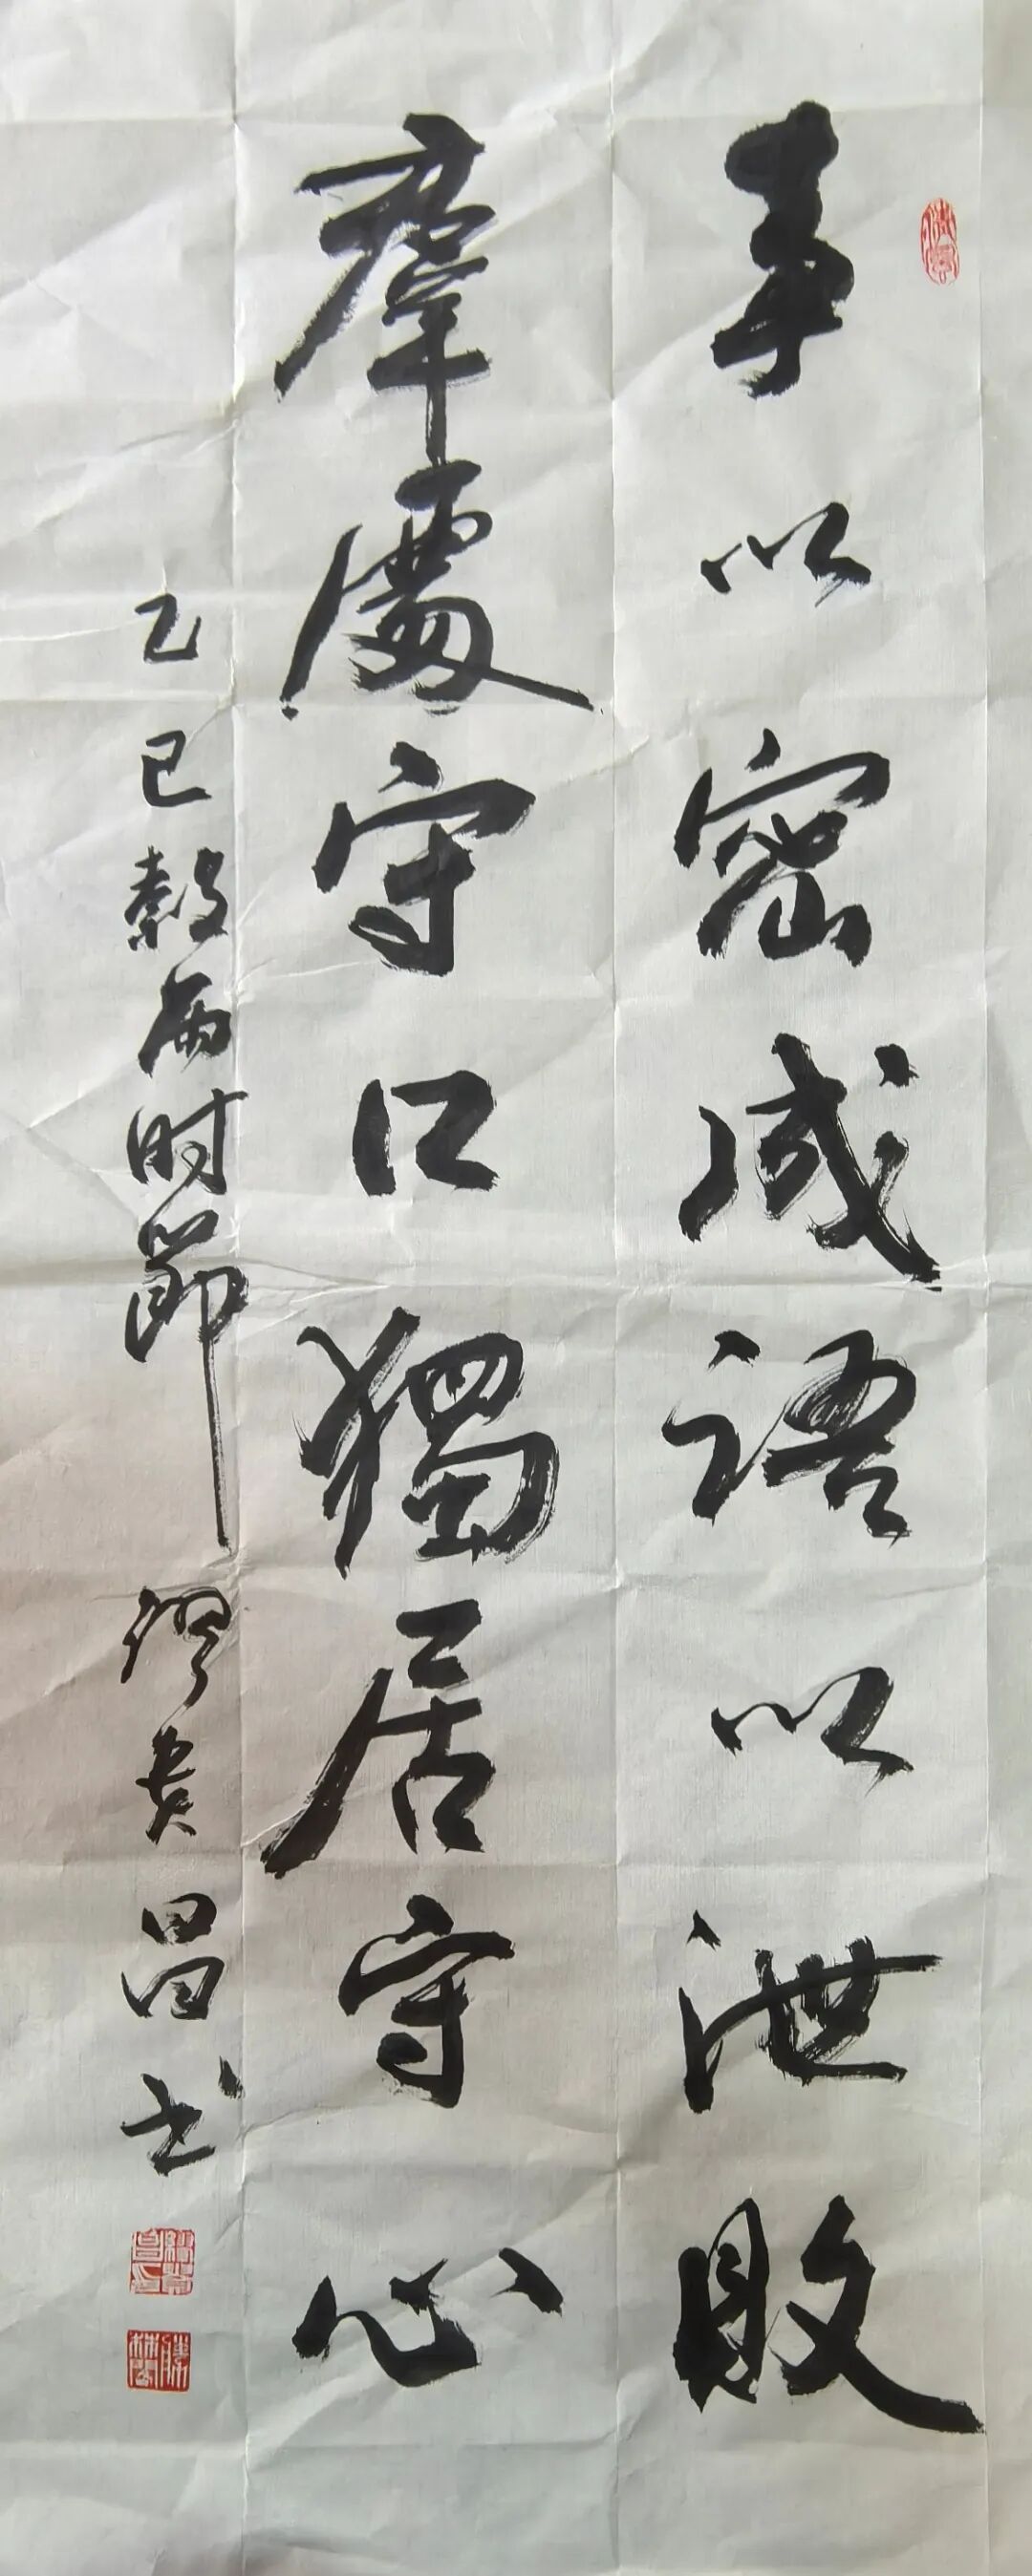 事以密成語以泄敗
羣處守口獨居守心
乙巳穀雨时節 谬贵昌书